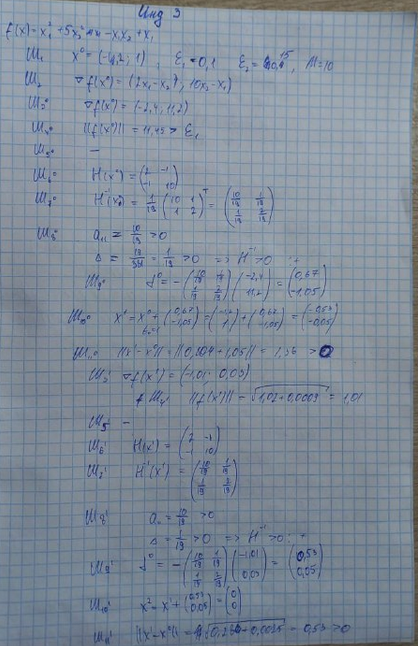 Инд 3
f(x) = x₁² + 5x₂² - x₁x₂ + x₁
Ш₁ x⁰ = (-1,2; 1), ε₁ = 0,1 ε₂ = 0,15, M = 10
Ш₂ ∇f(x⁰) = (2x₁ - x₂; 10x₂ - x₁)
Ш₃⁰ ∇f(x⁰) = (-2,4; 11,2)
Ш₄⁰ ||f(x⁰)|| = 11,45 > ε₁
Ш₅⁰ —
Ш₆⁰ H(x⁰) = (2 -1; -1 10)
Ш₇⁰ H⁻¹(x₀) = 1/19 (10 1; 1 2)ᵀ = (10/19 1/19; 1/19 2/19)
Ш₈⁰ a₁₁ = 10/19 > 0
Δ = 19/361 = 1/19 > 0 => H⁻¹ > 0
Ш₉⁰ d⁰ = -(10/19 1/19; 1/19 2/19)(-2,4; 11,2) = (0,67; -1,05)
Ш₁₀⁰ x¹ = x⁰ + (0,67; -1,05) = (-1,2; 1) + (0,67; -1,05) = (-0,53; -0,05)
Ш₁₁⁰ ||x¹ - x⁰|| = || + 1,05|| = > 0
Ш₃¹ ∇f(x¹) = (-1,01; 0,03)
Ш₄¹ ||f(x¹)|| = √1,02 + 0,0009 = 1,01
Ш₅¹ —
Ш₆¹ H(x¹) = (2 -1; -1 10)
Ш₇¹ H⁻¹(x¹) = (10/19 1/19; 1/19 2/19)
Ш₈¹ a₁₁ = 10/19 > 0
Δ = 1/19 > 0 => H⁻¹ > 0
Ш₉¹ d⁰ = -(10/19 1/19; 1/19 2/19)(-1,01; 0,03) = (0,53; 0,05)
Ш₁₀¹ x² = x¹ + (0,53; 0,05) = (0; 0)
Ш₁₁¹ = 0,53 > 0